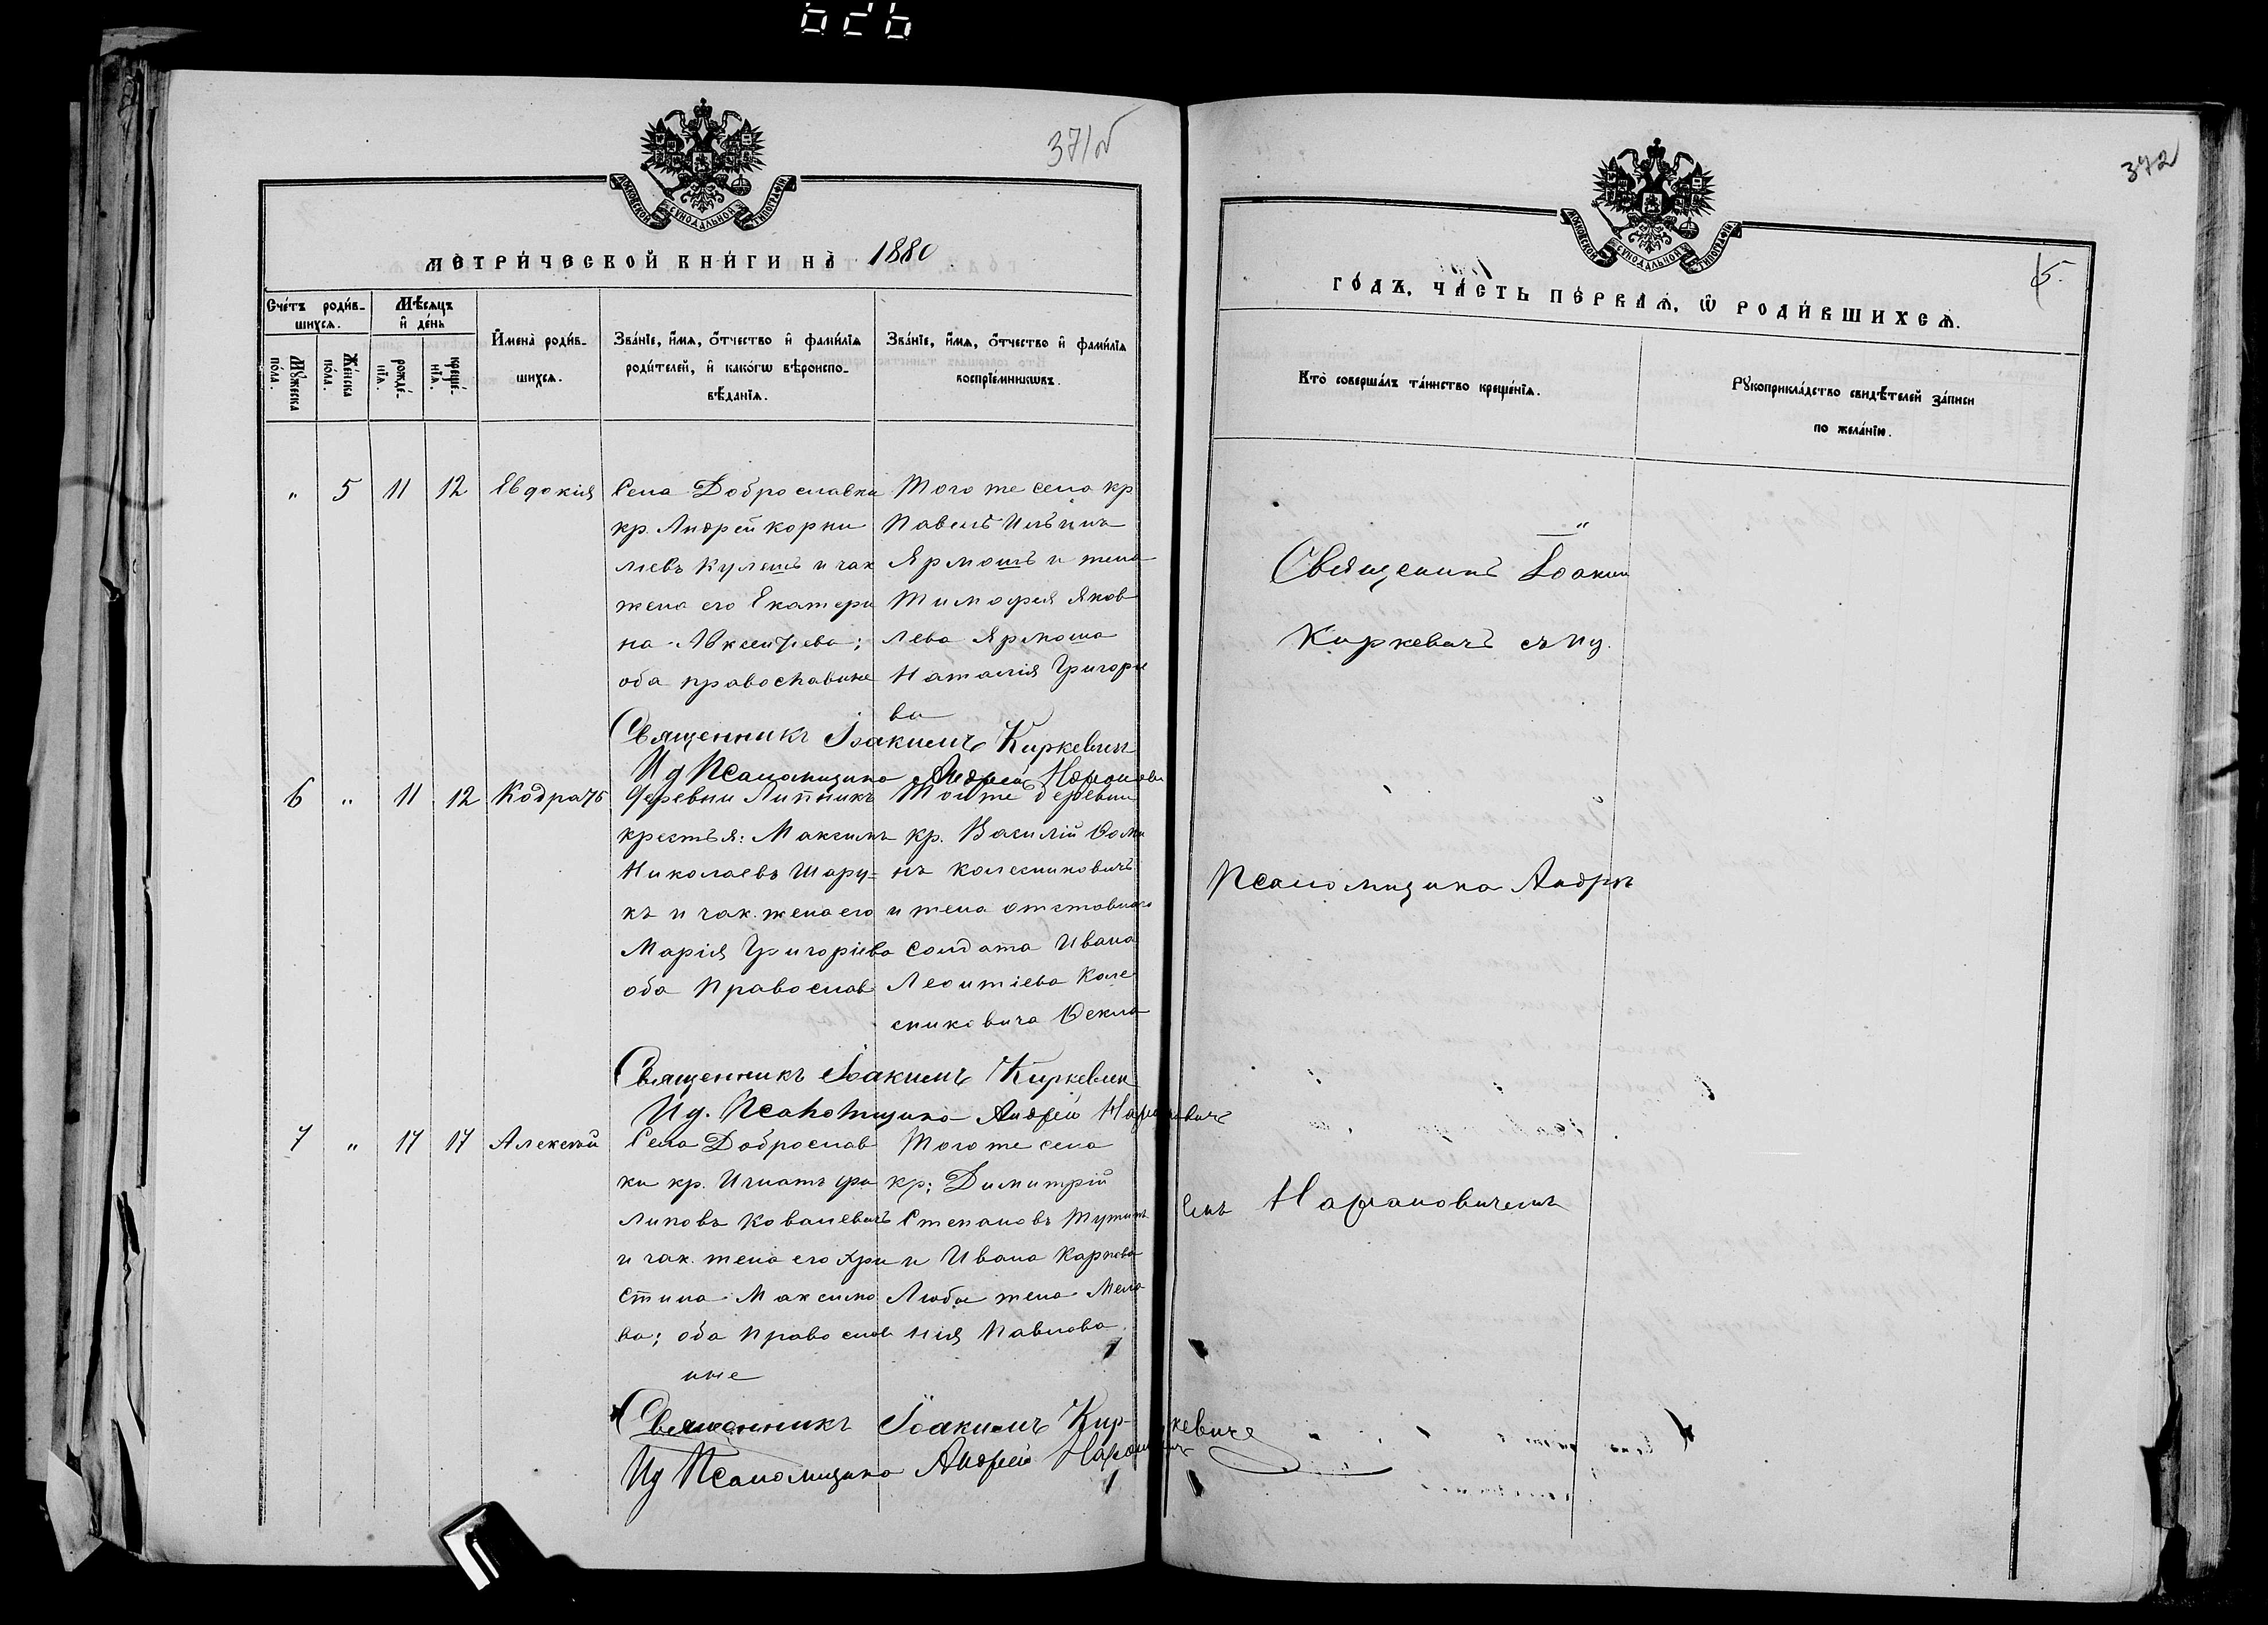 371об
МЕТРИЧЕСКОЙ КНИГИ НА 1880
Счетъ родив-
шихся.
Мужеска пола.
Женска пола.
Мѣсяцъ
и день
рожде-
нія.
креще-
нія.
Имена родив-
шихся.
Званіе, имя, отчество и фамилія
родителей, и какого вѣроиспо-
вѣданія.
Званіе, имя, отчество и фамилія
воспріемниковъ.
" 5 11 12 Евдокія
Села Доброславки
кр. Андрей Корни
ліевъ Кулешъ и зак
жена его Екатери
на Авксентіева;
оба православные
Того же села кр
Павелъ Ильинъ
Ярмошъ и жена
Тимофея Яков
лева Ярмоша
Наталія Григорье
ва
Священникъ Іоакимъ Киркевичъ
Ид Псаломщика Андрей
6 " 11 12 Кодратъ
Деревни Липникъ
крестья: Максимъ
Николаевъ Шару=
къ и зак. жена его
Марія Григоріева
оба Православ
Той же деревни
кр. Василій Ѳоми
нъ Колесниковичъ
и жена отставнаго
солдата Ивана
Леонтіева Коле
сниковича Ѳекла
Священникъ Іоакимъ Киркевич
Ид. Псаломщика Андрей Нарановичъ
7 " 17 17 Алексѣй
Села Доброслав
ки кр. Игнатъ Фи
липовъ Ковалевичъ
и зак. жена его Хри
стина Максимо
ва; оба Православ
ные
Того же села
кр: Димитрій
Степановъ
и Ивана Карпова
жена Мела
нія Павлова.
Священникъ Іоакимъ Кир-кевичъ
Ид Псаломщика Андрей
372
5.
ГОДЪ, ЧАСТЬ ПЕРВАЯ, Ѡ РОДИВШИХСЯ.
Кто совершалъ таинство крещенія.
Рукоприкладство свидѣтелей записи
по желанію.
"
Священникъ Іоаким
Киркевичъ съ ид.
Псаломщика Андре
емъ Нарановичемъ
МОСКОВСКОЙ СУНОДАЛЬНОЙ ТИПОГРАФІИ
МОСКОВСКОЙ СУНОДАЛЬНОЙ ТИПОГРАФІИ